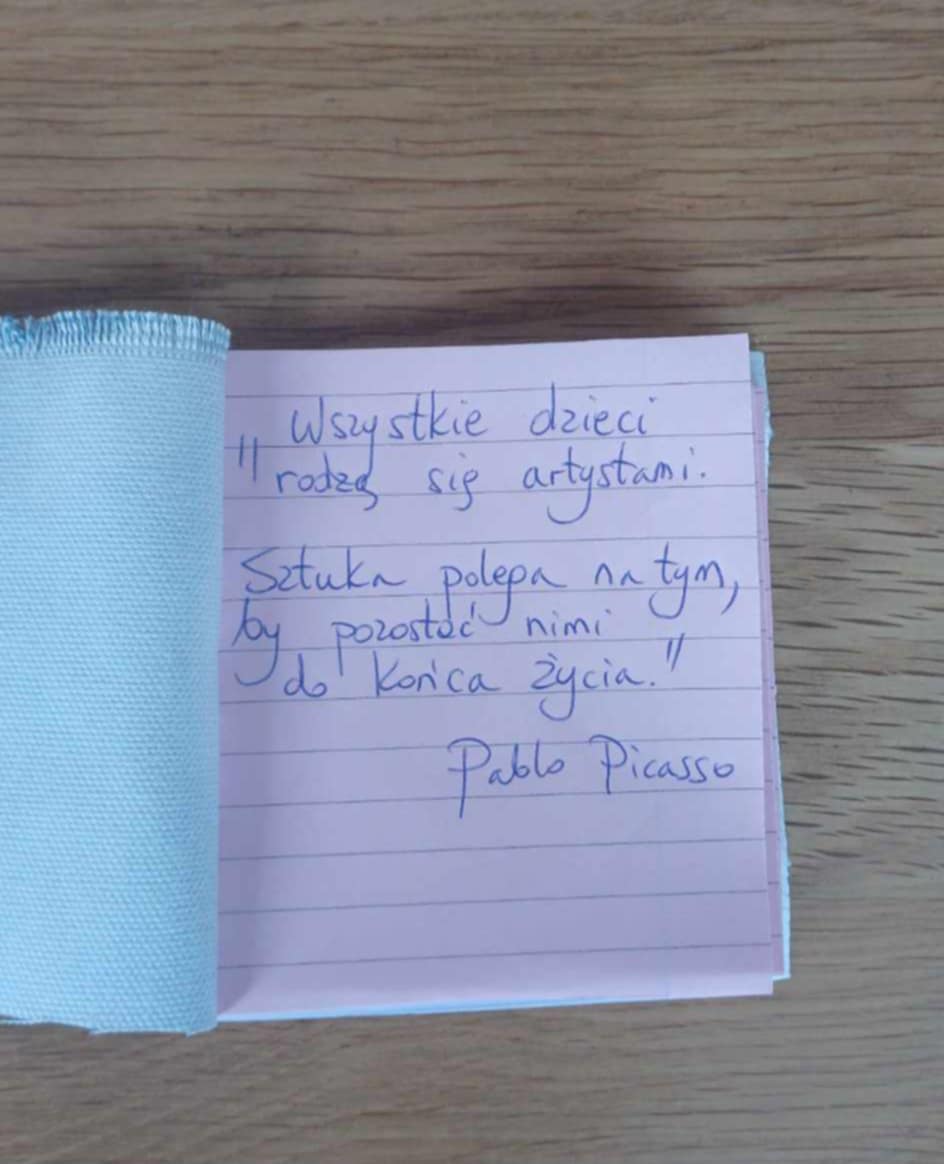 Wszystkie dzieci
"rodzą się artystami.
Sztuka polega na tym,
by pozostać nimi
do końca życia."
Pablo Picasso